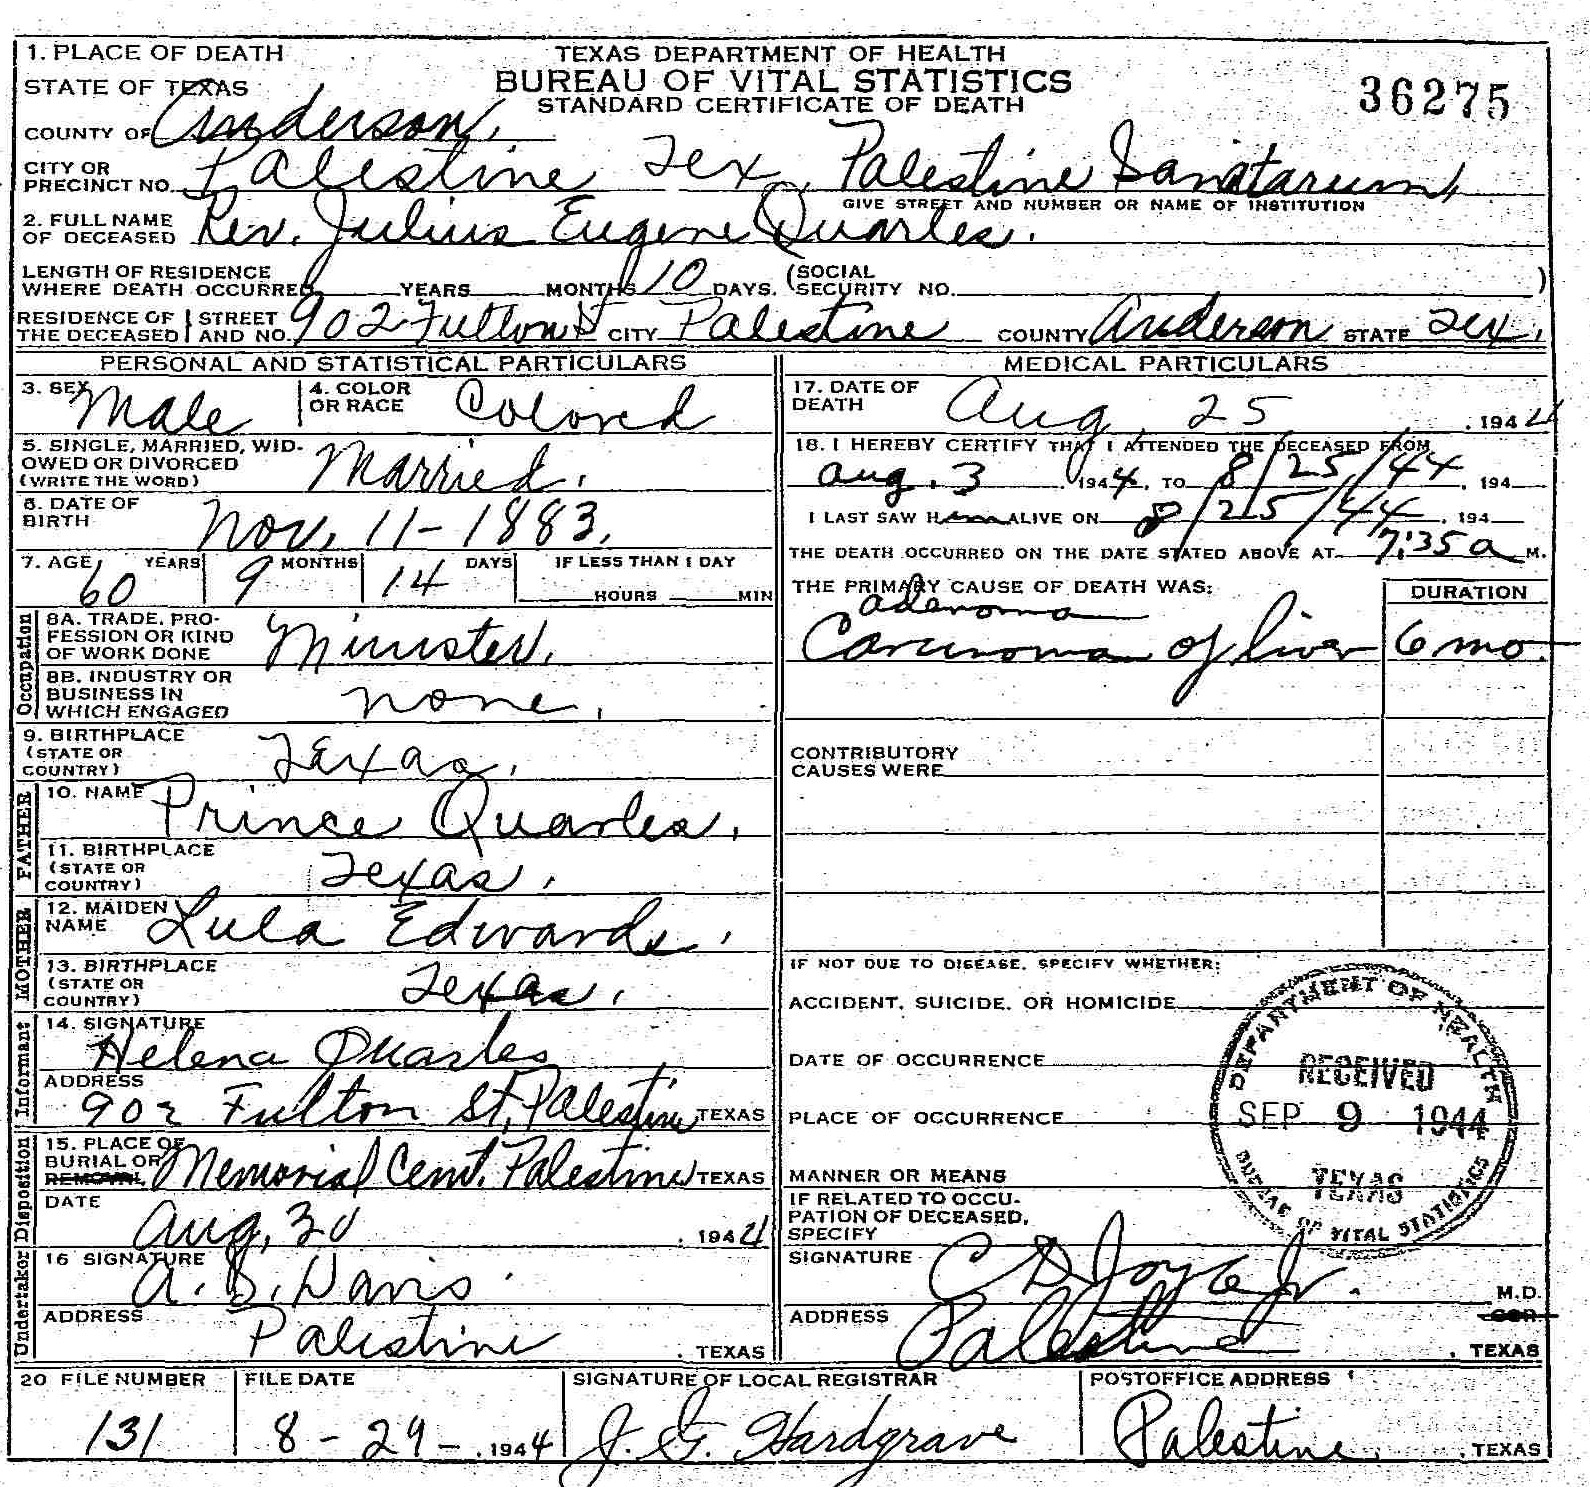 1. PLACE OF DEATH
TEXAS DEPARTMENT OF HEALTH
BUREAU OF VITAL STATISTICS
STANDARD CERTIFICATE OF DEATH
36275
STATE OF TEXAS
COUNTY OF Anderson,
CITY OR PRECINCT NO. Palestine Tex, Palestine Sanatarium,
GIVE STREET AND NUMBER OR NAME OF INSTITUTION
2. FULL NAME OF DECEASED Rev. Julius Eugene Quarles.
LENGTH OF RESIDENCE WHERE DEATH OCCURRED YEARS MONTHS 10 DAYS. (SOCIAL SECURITY NO. )
RESIDENCE OF THE DECEASED STREET AND NO. 902 Fulton St CITY Palestine COUNTY Anderson STATE Tex.
PERSONAL AND STATISTICAL PARTICULARS
3. SEX Male
4. COLOR OR RACE Colored
5. SINGLE, MARRIED, WIDOWED OR DIVORCED (WRITE THE WORD) Married.
6. DATE OF BIRTH Nov. 11-1883.
7. AGE 60 YEARS 9 MONTHS 14 DAYS IF LESS THAN 1 DAY HOURS MIN
Occupation
8A. TRADE, PROFESSION OR KIND OF WORK DONE Minister.
8B. INDUSTRY OR BUSINESS IN WHICH ENGAGED none.
9. BIRTHPLACE (STATE OR COUNTRY) Texas.
FATHER
10. NAME Prince Quarles.
11. BIRTHPLACE (STATE OR COUNTRY) Texas.
MOTHER
12. MAIDEN NAME Lula Edwards.
13. BIRTHPLACE (STATE OR COUNTRY) Texas.
Informant
14. SIGNATURE Helena Quarles
ADDRESS 902 Fulton St, Palestine TEXAS
Disposition
15. PLACE OF BURIAL OR REMOVAL Memorial Cemt. Palestine TEXAS
DATE Aug, 30, 1944
Undertaker
16 SIGNATURE A. B. Davis.
ADDRESS Palestine, TEXAS
MEDICAL PARTICULARS
17. DATE OF DEATH Aug 25, 1944
18. I HEREBY CERTIFY THAT I ATTENDED THE DECEASED FROM
Aug. 3, 1944, TO 8/25/44, 194
I LAST SAW Him ALIVE ON 8/25/44, 194
THE DEATH OCCURRED ON THE DATE STATED ABOVE AT 7:35 a M.
THE PRIMARY CAUSE OF DEATH WAS: DURATION
adenoma
Carcinoma of liver 6 mo.
CONTRIBUTORY CAUSES WERE
IF NOT DUE TO DISEASE, SPECIFY WHETHER:
ACCIDENT, SUICIDE, OR HOMICIDE
DATE OF OCCURRENCE
PLACE OF OCCURRENCE
MANNER OR MEANS
IF RELATED TO OCCUPATION OF DECEASED, SPECIFY
DEPARTMENT OF HEALTH
RECEIVED
SEP 9 1944
TEXAS
BUREAU OF VITAL STATISTICS
SIGNATURE C D Joyce Jr. M.D.
COR
ADDRESS Palestine, TEXAS
20 FILE NUMBER 131
FILE DATE 8-29-, 1944
SIGNATURE OF LOCAL REGISTRAR J. G. Hardgrave
POSTOFFICE ADDRESS Palestine, TEXAS